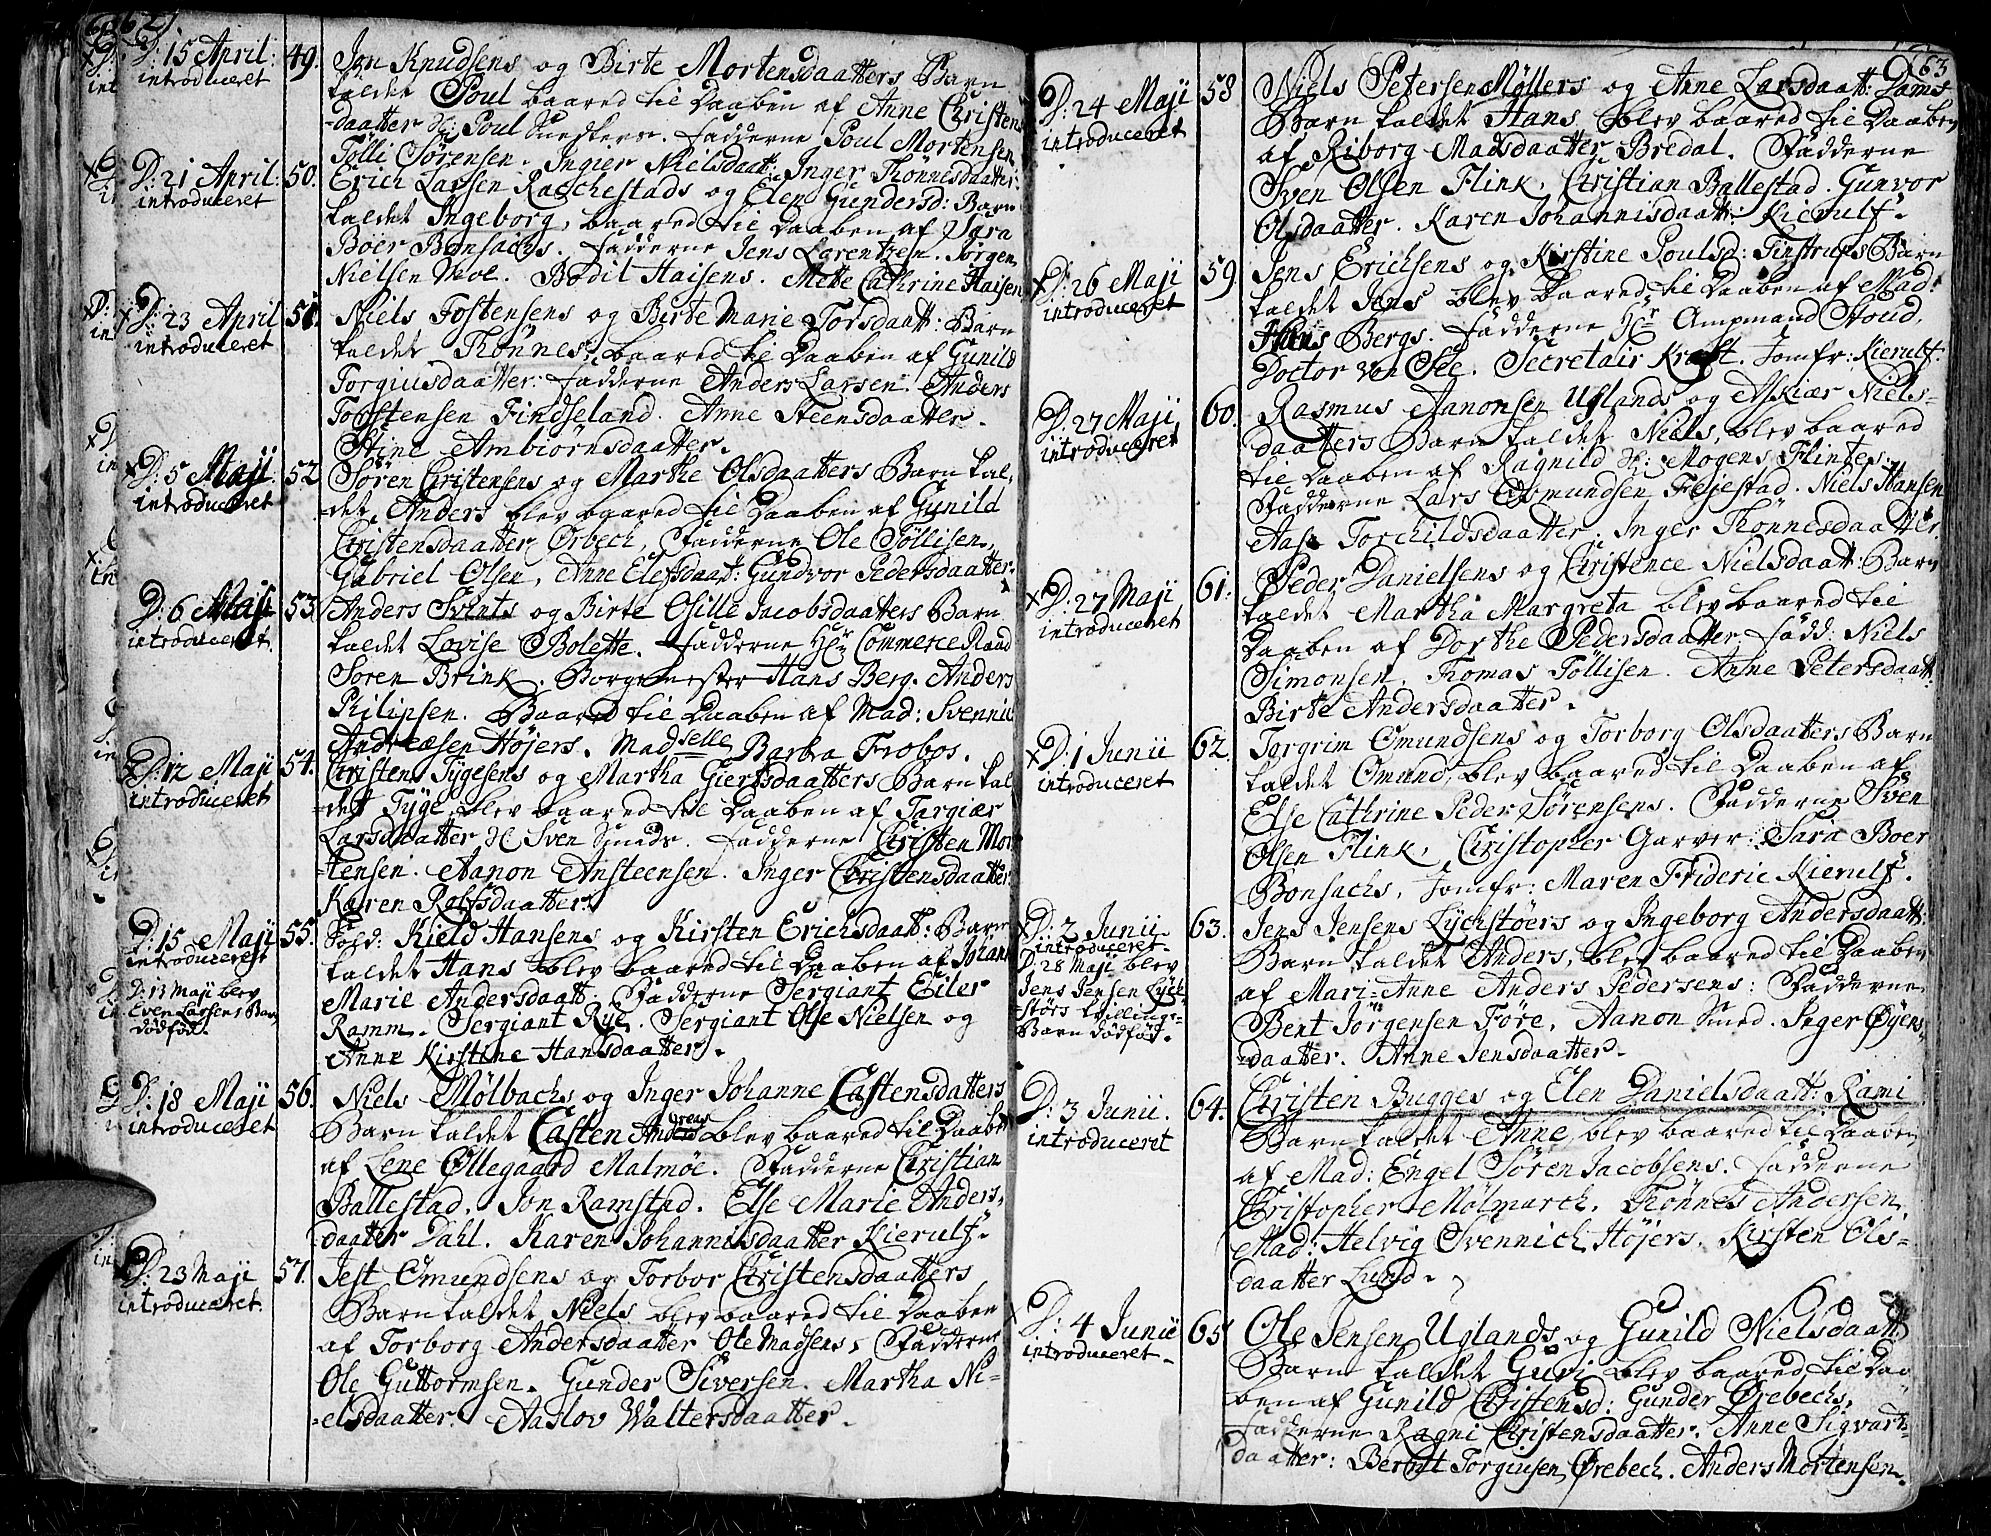 62
D: 15 April:
introduceret
49. Jon Knudsens og Birte Mortensdaatters Barn
kaldet Poul baared til Daaben af Anne Christens
-daatter Poul Snedkers. Fadderne Poul Mortensen
Tolli Sørensen. Inger Nielsdaat: Inger Thönnesdaatter:
D: 21 April:
introduceret
50. Erich Larsen Raschestads og Elen Gundersd: Barn
kaldet Ingeborg, baared til Daaben af Sara
Böer Bonsachs. Fadderne Jens Lorentzen. Jörgen
Nielsen Moe. Bodil Haisens. Mette Cathrine Haisen
D: 23 April
introduceret
51. Niels Tostensens og Birte Marie Torsdaatt: Barn
kaldet Thönnes, baared til Daaben af Gunild
Torgiusdaatter: Fadderne Anders Larsen. Anders
Torstensen Findseland. Anne Steensdaatter.
Stine Ambiörnsdaatter.
D: 5 Maji:
introduceret
52 Sören Christensens og Marthe Olsdaatters Barn kal-
-det Anders blev baared til Daaben af Gunild
Christensdaatter Örbech, Fadderne Ole Töllisen,
Gabriel Olsen, Anne Elefsdaat: Gundvor Pedersdaatter
D: 6 Maji
introduceret
53 Anders Svints og Birte Osille Jacobsdaatters Barn
kaldet Lovise Bolette. Fadderne Hr Commerce Raad
Sören Brink. Borgemester Hans Berg. Anders
Philipsen. Baared til Daaben af Mad: Svennic
Andreæsen Höjers. Madselle Barbra Frobos.
D: 12 Maji
introduceret
54. Christens Tygesens og Martha Giertsdaatters Barn kal
-det Tyge, blev baared til Daaben af Targiær
Larsdaatter Sven Smeds. Fadderne Christen Mor
-tensen. Aanon Ansteensen. Inger Christensdaatter
Karen Rolfsdaatter
D: 15 Maji
introduceret
D: 13 Maji blev
Even Larsens Barn
dödföd.
55. Sold: Kield Hansens og Kirsten Erichsdaat: Barn
kaldet Hans blev baared til Daaben af Johan
Marie Andersdaatt Fadderne Sergiant Eiler
Ramm. Sergiant Rye. Sergiant Ole Nielsen og
Anne Kirstine Hansdaatter.
D: 18 Maji
introduceret
56. Niels Mølbachs og Inger Johanne Castensdatters
Barn kaldet Casten Andreas blev baared til Daabe
af Lene Øllegaard Malmöe. Fadderne Christian
Ballestad. Jon Ramstad. Else Marie Anders-
-daatter Dahl. Karen Johannisdaatter Kierulf.
D: 23 Maji
introduceret.
57. Jest Omundsens og Torbor Christensdaatters
Barn kaldet Niels blev baared til Daaben
af Torborg Andersdaatter Ole Madsens, Fadderne
Ole Guttormsen. Gunder Siversen. Martha Ni-
-elsdaatter. Aaslov Waltersdaatter.
63
D: 24 Maji
introduceret
58 Niels Petersen Møllers og Anne Larsdaatt: Dams
Barn kaldet Hans blev baared til Daaben
af Riborg Madsdaatter Bredal. Fadderne
Sven Olsen Flink, Christian Ballestad. Gunvor
Olsdaatter. Karen Johannisdaatt: Kierulf.
D: 26 Maji
introduceret
59. Jens Erichsens og Kirstine Poulsd: Finstrups Barn
kaldet Jens blev baared til Daaben af Mad:
Hans Bergs. Fadderne Hr Ampmand Stoud,
Doctor von See. Secretair Kraft. Jomfr: Kierulf.
D: 27 Maji,
introduceret
60. Rasmus Aanonsen Uglands og Askiær Niels-
daatters Barn kaldet Niels, blev baared
til Daaben af Ragnild Mogens Flintes.
Fadderne Lars Osmundsen Fejestad. Niels Hansen
Aase Torchildsdaatter. Inger Thönnesdaatter
D: 27 Maji
introduceret
61. Peder Danielsens og Christence Nielsdaat: Barn
kaldet Martha Margreta blev baared til
Daaben af Dorthe Pedersdaatter, Fadd: Niels
Simonsen, Thomas Töllisen. Anne Petersdaatt:
Birte Andersdaatter.
D: 1 Junii
introduceret
62. Torgrim Omundsens og Torborg Olsdaatters Barn
kaldet Omund, blev baared til Daaben af
Else Cathrine Peder Sörensens. Fadderne Sven
Olsen Flink, Christopher Garver: Sara Boer
Bonsachs, Jomfr: Maren Frideric Kierulf.
D: 2 Junii
introduceret.
D: 28 Maji blev
Jens Jensen Lych-
störs tvillinge-
Barn dödföd.
63. Jens Jensens Lychstøers og Ingeborg Andersdaatt:
Barn kaldet Anders, blev baared til Daaben
af Mari-Anne Anders Pedersens: Fadderne
Bent Jörgensen Töre, Aanon Smed. Seger Øyers-
-daatter. Anne Jensdaatter.
D: 3 Junii.
introduceret
64. Christen Bugges og Elen Danielsdaatt: Rami
Barn kaldet Anne, blev baared til Daaben
af Mad: Engel Søren Jacobsens. Fadderne
Christopher Mølmarch. Thönnes Andersen,
Mad: Helvig Svennich Höjers. Kirsten Ols-
daatter Lund.
D: 4 Junii
introduceret.
65 Ole Jensen Uglands og Gunild Nielsdaatt
Barn kaldet Guri blev baared til Daa
ben af Gunild Christensd: Gunder Ørebechs,
Fadderne Ragni Christensdaatter. Anne Sigvart-
daatter: Berent Torgiusen Ørebech. Anders Mortensen.